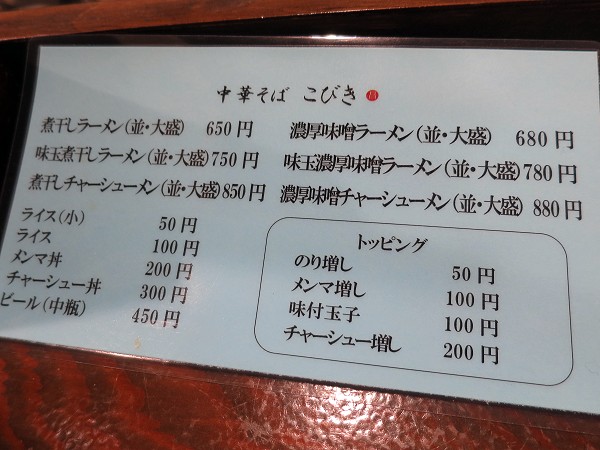 中華そば こびき
煮干しラーメン(並・大盛) 650円
味玉煮干しラーメン(並・大盛)750円
煮干しチャーシューメン(並・大盛)850円
濃厚味噌ラーメン(並・大盛) 680円
味玉濃厚味噌ラーメン(並・大盛)780円
濃厚味噌チャーシューメン(並・大盛) 880円
ライス(小) 50円
ライス 100円
メンマ丼 200円
チャーシュー丼 300円
ビール(中瓶) 450円
トッピング
のり増し 50円
メンマ増し 100円
味付玉子 100円
チャーシュー増し 200円